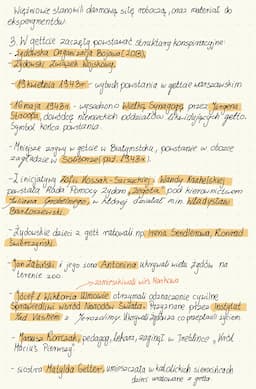 Więźniowie stanowili darmową siłę roboczą, oraz materiał do
eksperymentów
3. W getcie zaczęły powstawać struktury konspiracyjne:
- Żydowska Organizacja Bojowa (ŻOB),
- Żydowski Związek Wojskowy.
- 19 kwietnia 1943r - wybuch powstania w getcie warszawskim
- 16 maja 1943r. - wysadzono Wielką Synagogę przez Jürgena
Stroopa, dowódcę niemieckich oddziałów likwidujących getto.
Symbol końca powstania.
- Mniejsze zrywy w getcie w Białymstoku, powstanie w obozie
zagłady w Sobiborze (paź. 1943r.).
- Z inicjatywy Zofii Kossak-Szczuckiej i Wandy Krahelskiej
powstała Rada Pomocy Żydom "Żegota" pod kierownictwem
Juliana Grobelnego, w której działał m.in. Władysław
Bartoszewski
- Żydowskie dzieci z getta ratowali np. Irena Sendlerowa, Konrad
Świerczyński
- Jan Żabiński i jego żona Antonina ukrywali wielu Żydów na
terenie zoo
zamieszkiwali wieś Markowa
- Józef i Wiktoria Ulmowie otrzymali odznaczenie cywilne
Sprawiedliwi wśród Narodów Świata. Przyznane przez Instytut
Yad Vashem z Jerozolimy. Ukrywali Żydów, co przepłacili życiem
- Janusz Korczak, pedagog, lekarz, zaginął w Treblince, "Król
Maciuś Pierwszy"
- siostra Matylda Getter, umieszczała w katolickich sierocińcach
dzieci uratowane z getta